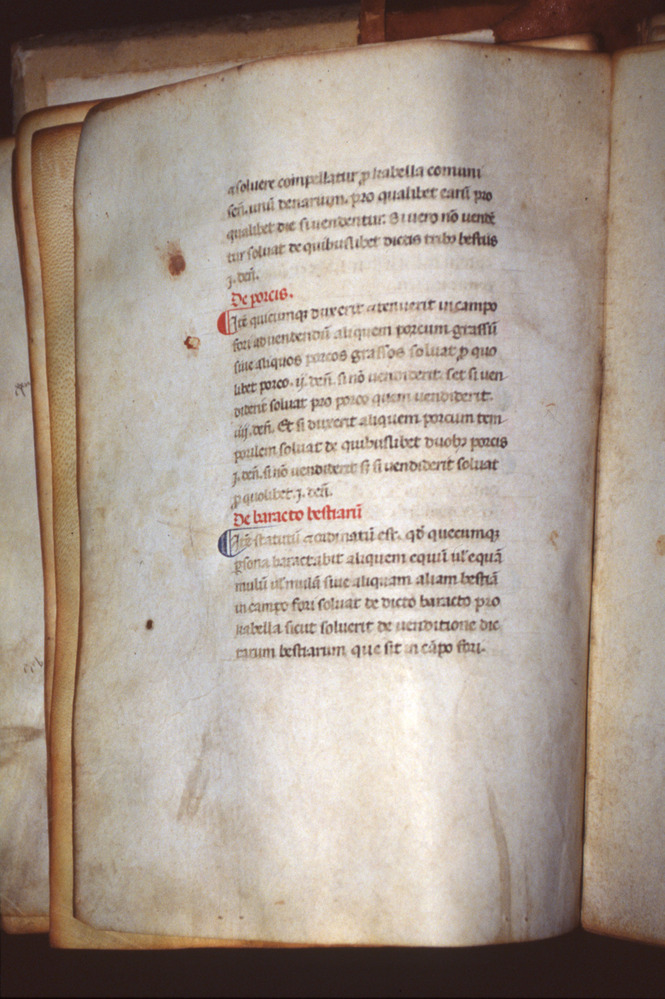 ⁊ soluere compellatur ꝑ kabella comuni
señ. unū denarium. pro qualibet earū pro
qualibet die si uendentur. Si uero nō uendē
tur soluat de quibuslibet dictis tribꝫ bestiis
j. deñ.
De porcis.
Itē quicumqꝫ duxerit ⁊ tenuerit in campo
fori ad uendendū aliquem porcum grassū
siue aliquos porcos grassos soluat ꝑ quo
libet porco. ij. deñ. si nō uendiderit. set si uen
diderit soluat pro porco quem uendiderit.
iiij. deñ. Et si duxerit aliquem porcum tem
porilem soluat de quibuslibet duobꝫ porcis
j. deñ. si nō uendiderit ⁊ si uendiderit soluat
ꝑ quolibet. j. deñ.
De baracto bestiarū
Itē statutū ⁊ ordinatū est. qđ quecumqꝫ
ꝑsona baractabit aliquem equū ul' equā
mulū ul' mulā siue aliquam aliam bestiā
in campo fori soluat de dicto baracto pro
kabella sicut soluerit de uenditione dic
tarum bestiarum que fit in cāpo fori.